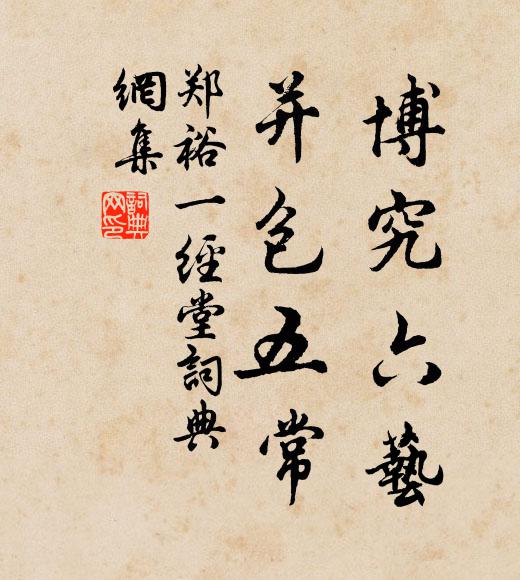 博究六藝
并包五常
郑裕一經堂詞典
網集
詞典
网印